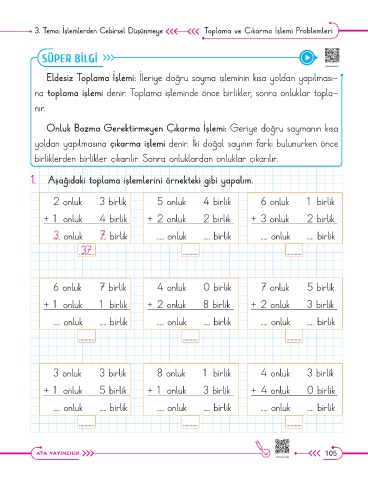 3. Tema: İşlemlerden Cebirsel Düşünmeye Toplama ve Çıkarma İşlemi Problemleri
SÜPER BİLGİ
Eldesiz Toplama İşlemi: İleriye doğru sayma işleminin kısa yoldan yapılması-
na toplama işlemi denir. Toplama işleminde önce birlikler, sonra onluklar topla-
nır.
Onluk Bozma Gerektirmeyen Çıkarma İşlemi: Geriye doğru saymanın kısa
yoldan yapılmasına çıkarma işlemi denir. İki doğal sayının farkı bulunurken önce
birliklerden birlikler çıkarılır. Sonra onluklardan onluklar çıkarılır.
1. Aşağıdaki toplama işlemlerini örnekteki gibi yapalım.
2 onluk 3 birlik 5 onluk 4 birlik 6 onluk 1 birlik
+ 1 onluk 4 birlik + 2 onluk 2 birlik + 3 onluk 2 birlik
3 onluk 7 birlik .... onluk .... birlik .... onluk .... birlik
37 ........ ........
6 onluk 7 birlik 4 onluk 0 birlik 7 onluk 5 birlik
+ 1 onluk 1 birlik + 2 onluk 8 birlik + 2 onluk 3 birlik
.... onluk .... birlik .... onluk .... birlik .... onluk .... birlik
........ ........ ........
3 onluk 3 birlik 8 onluk 1 birlik 4 onluk 3 birlik
+ 1 onluk 5 birlik + 1 onluk 3 birlik + 4 onluk 0 birlik
.... onluk .... birlik .... onluk .... birlik .... onluk .... birlik
........ ........ ........
ATA YAYINCILIK 105